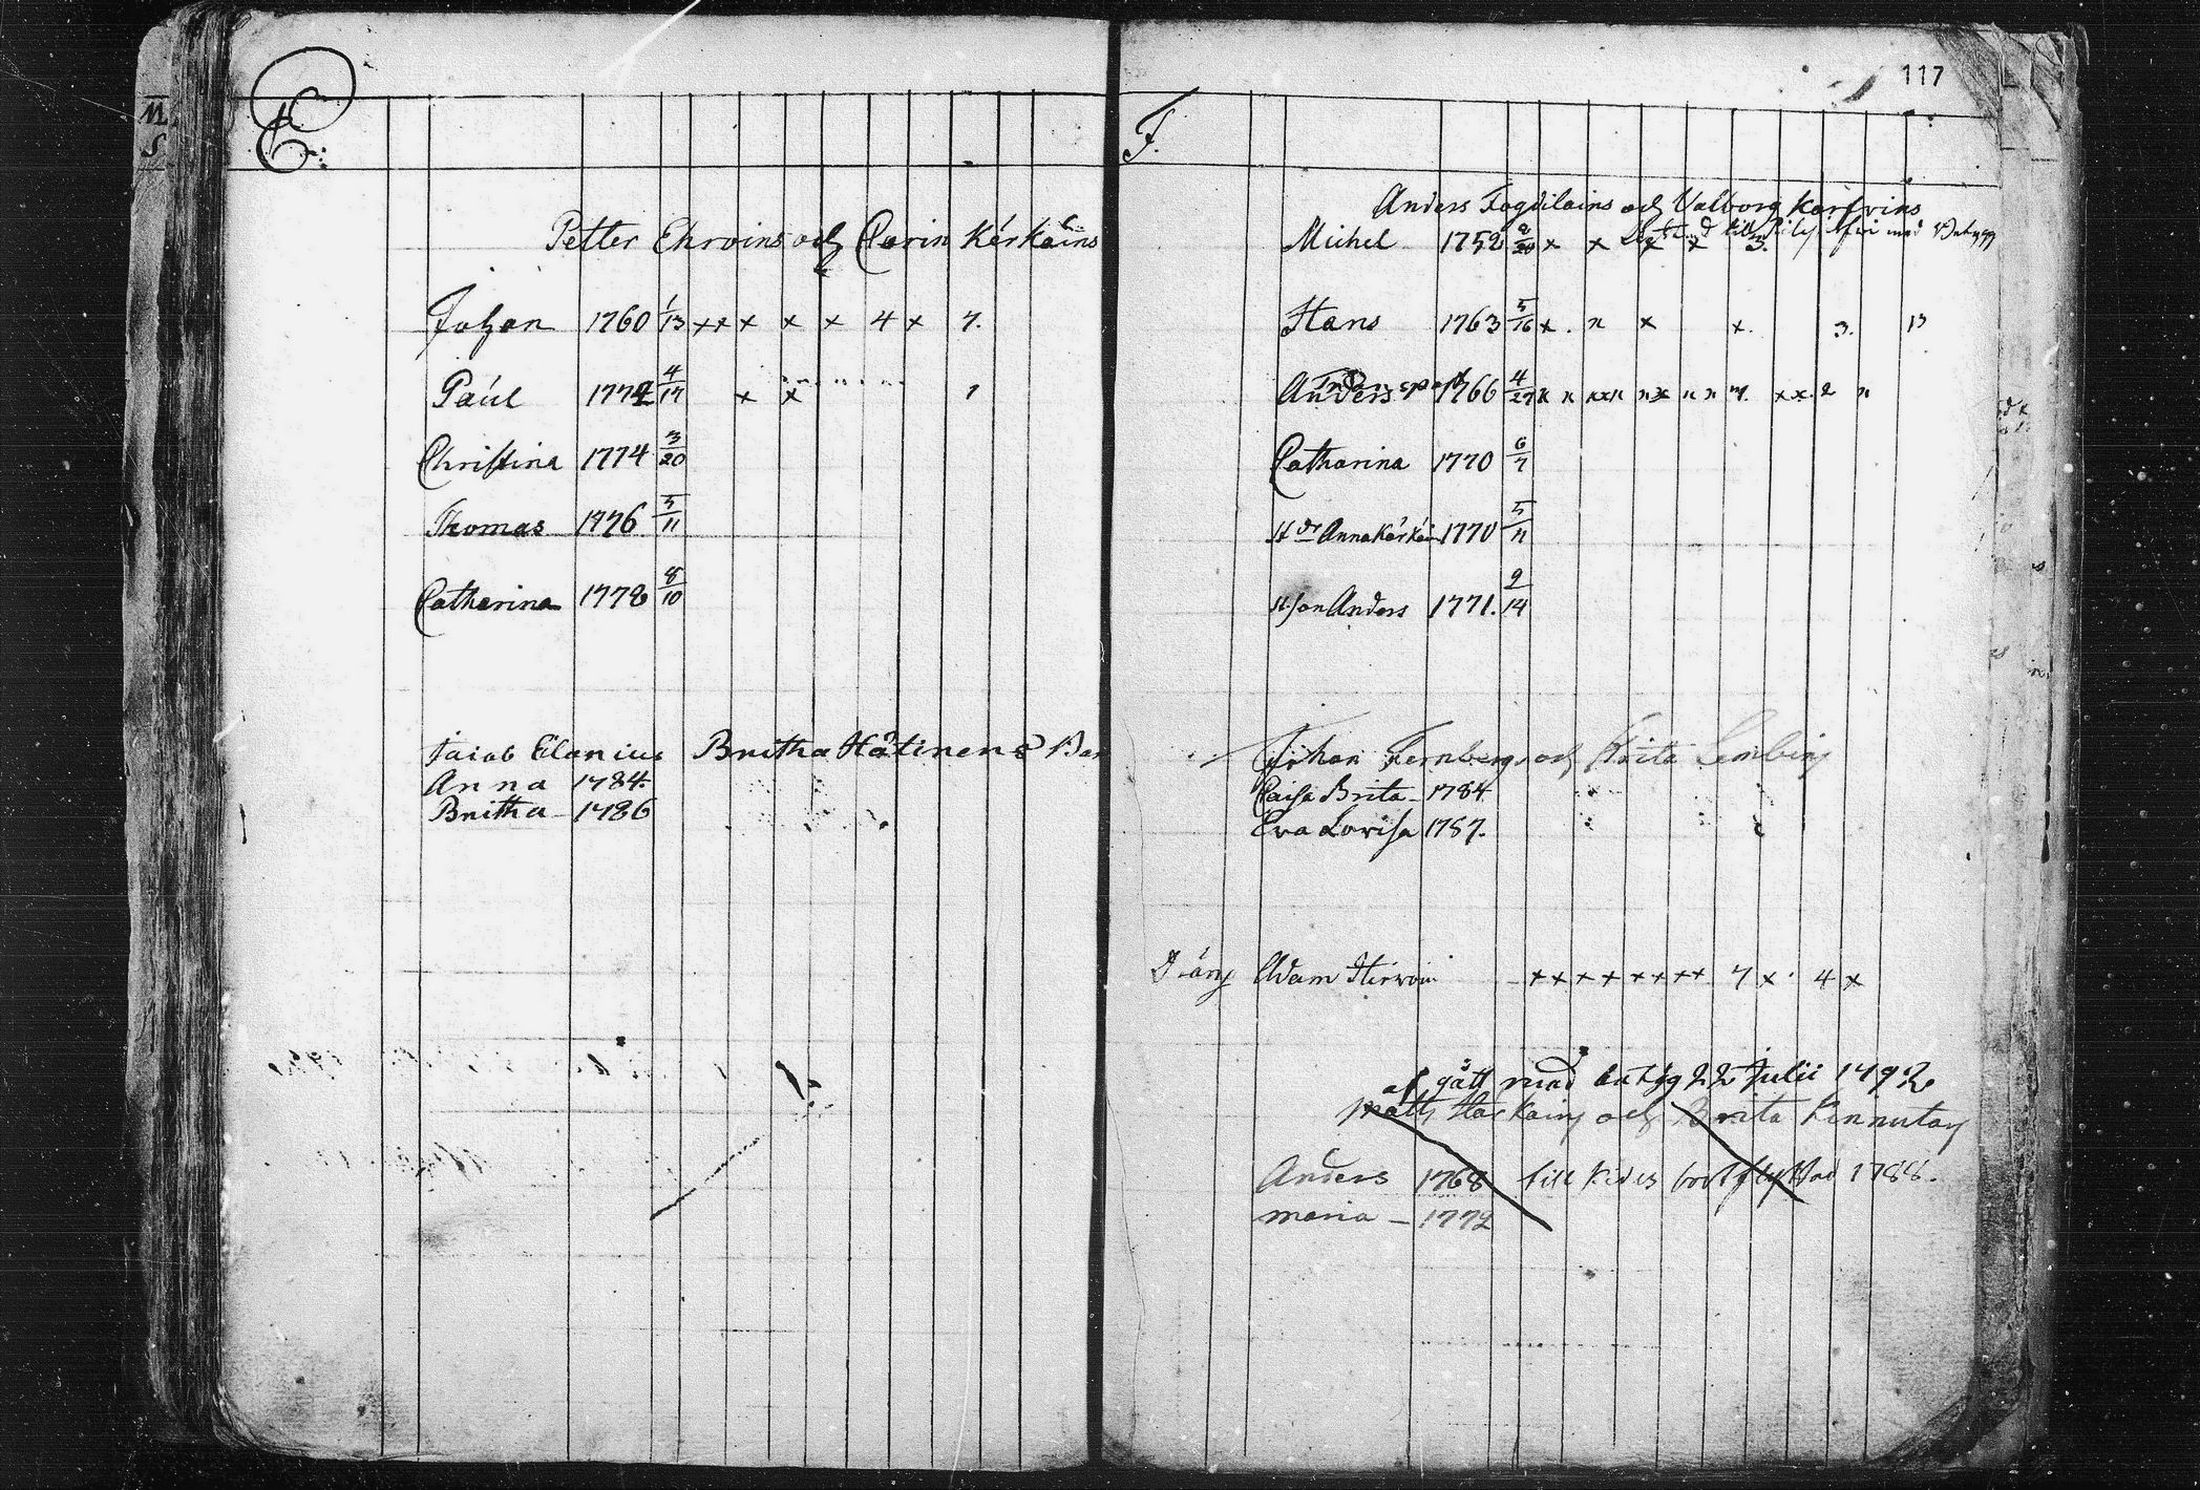 E:
Petter Ehroins och Carin Kärkäins
Johan 1760 1/13 x x x x x 4 x 7.
Paul 1772 4/17 x x 1
Christina 1774 3/20
Thomas 1776 5/11
Catharina 1778 8/10
Jacob Elanius Britha Håtinens Bar
Anna 1784.
Britha - 1786
117
F.
Anders Fogdilains och Valborg Karfvins
Michel 1752 x x x x 3.
Hans 1763 5/16 x. n x x. 3. 13
Anders 1766 4/27
Catharina 1770 6/7
St dr Anna Kärkäin 1770 5/11
St. son Anders 1771. 9/14
Johan Fernbergs och Brita Lembers
Caisa Brita - 1784
Eva Lovisa 1787.
Dräng Adam Hirvoin x x x x x x x x 7 x . 4 x
af gått med betyg 22 Julii 1792
Matts Harkains och Brita Kinnutar
Anders 1768 till Kides bortflyttad 1788.
Maria - 1772